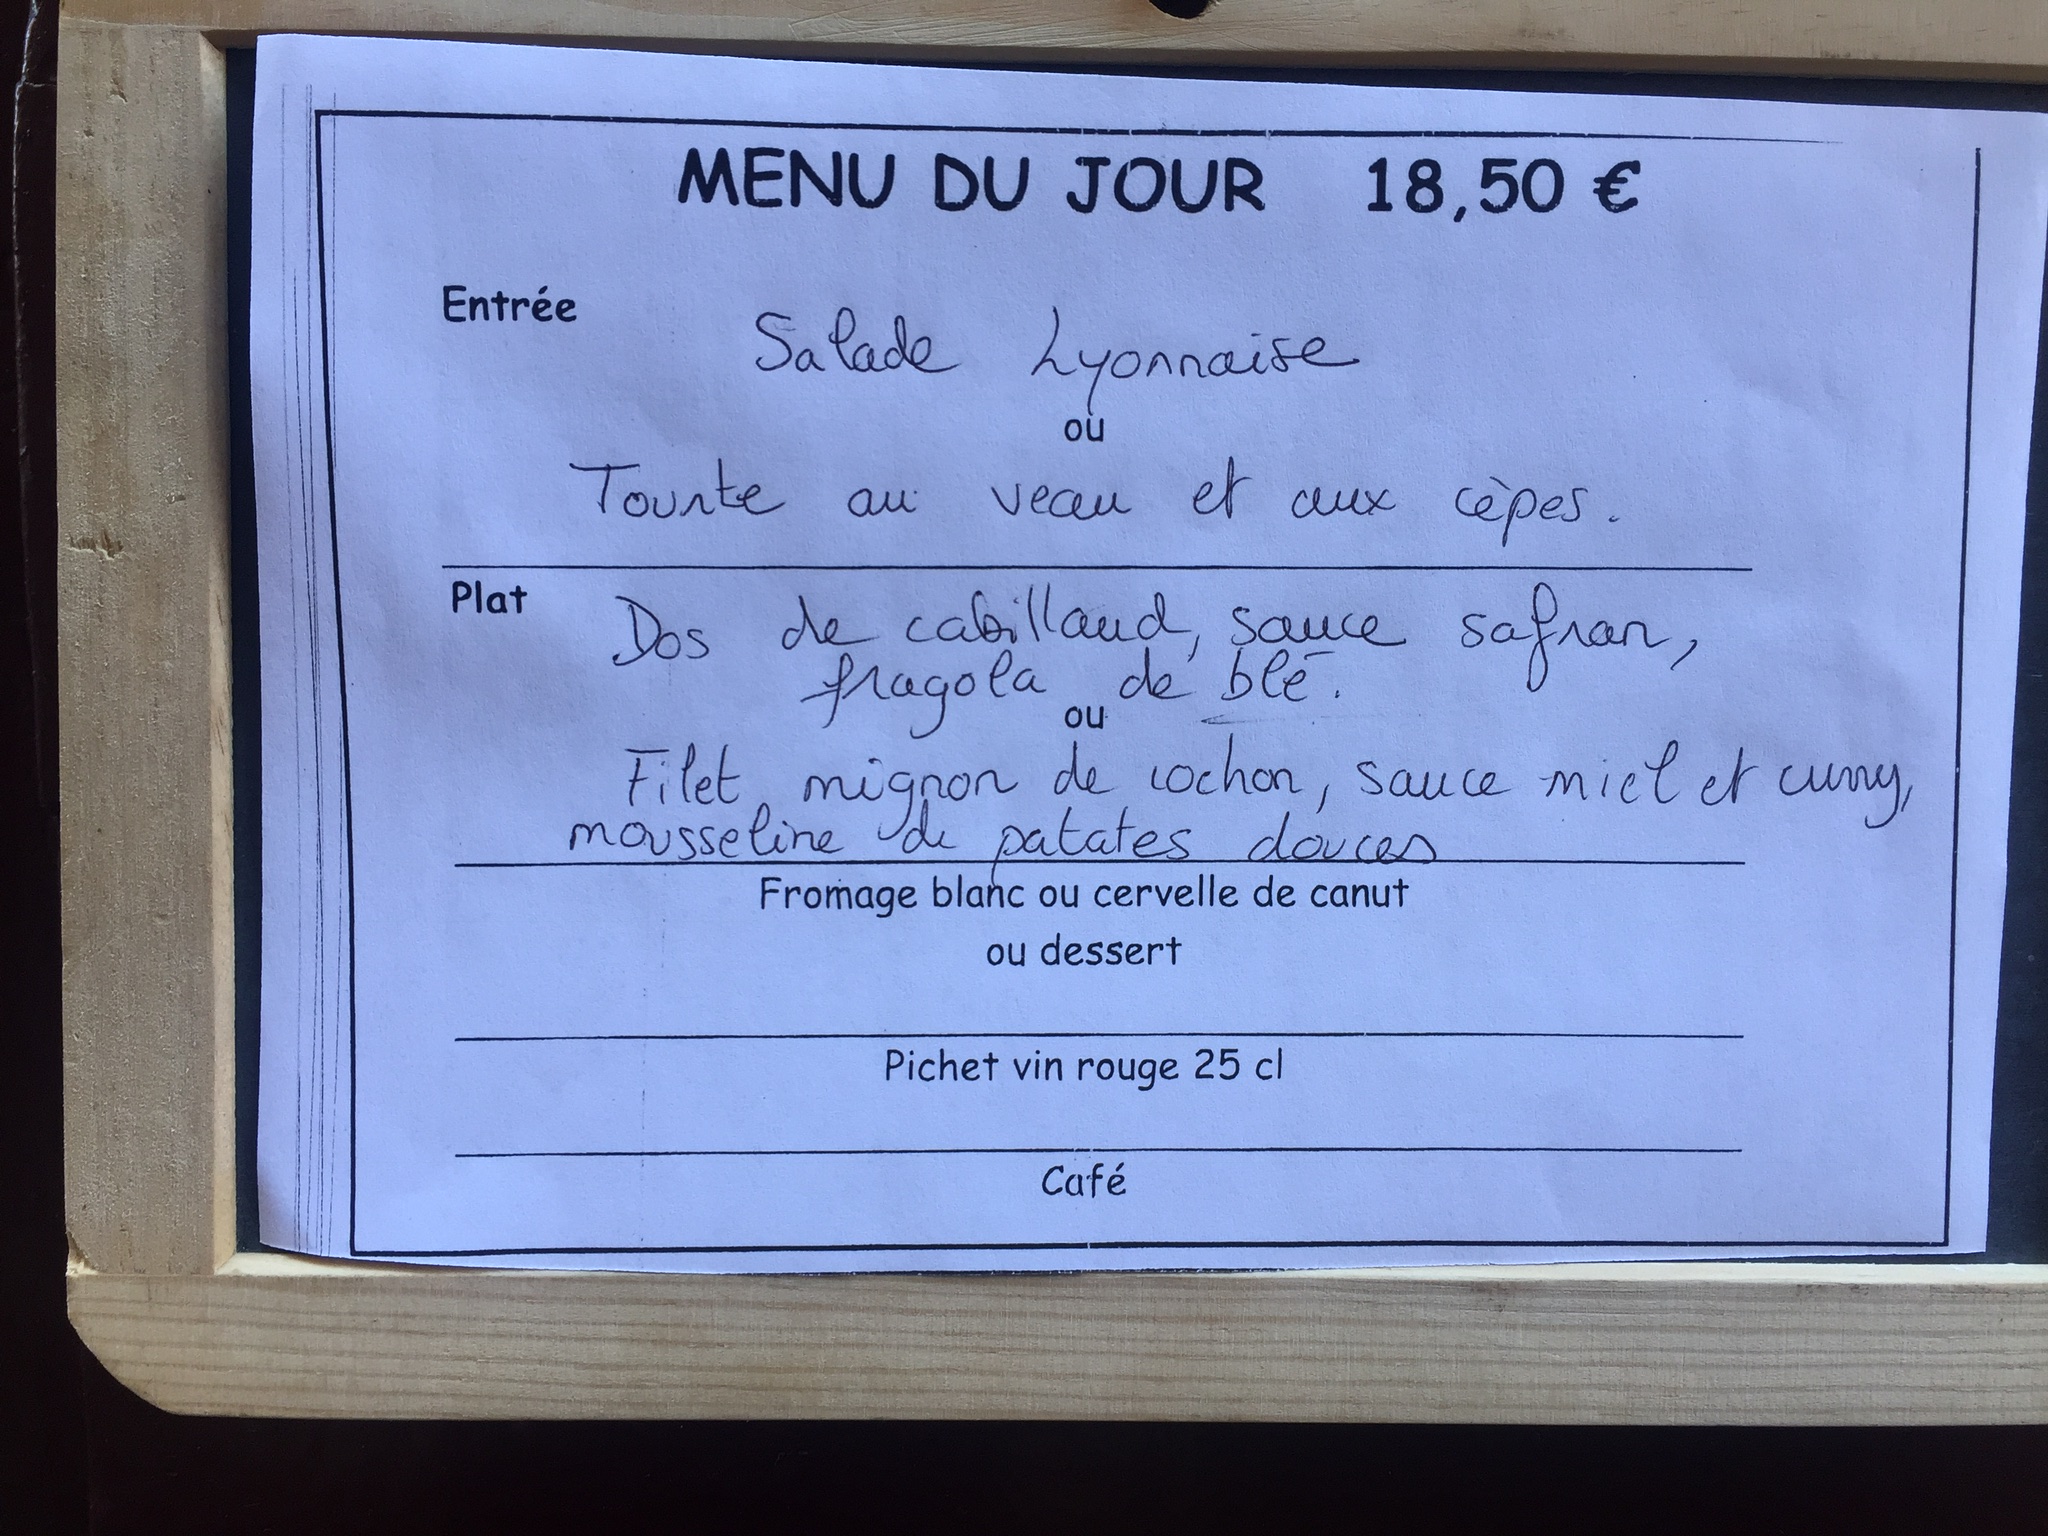 MENU DU JOUR 18,50 €
Entrée
Salade Lyonnaise
ou
Tourte au veau et aux cèpes.
Plat
Dos de cabillaud, sauce safran,
fragola de blé.
ou
Filet mignon de cochon, sauce miel et curry,
mousseline de patates douces
Fromage blanc ou cervelle de canut
ou dessert
Pichet vin rouge 25 cl
Café